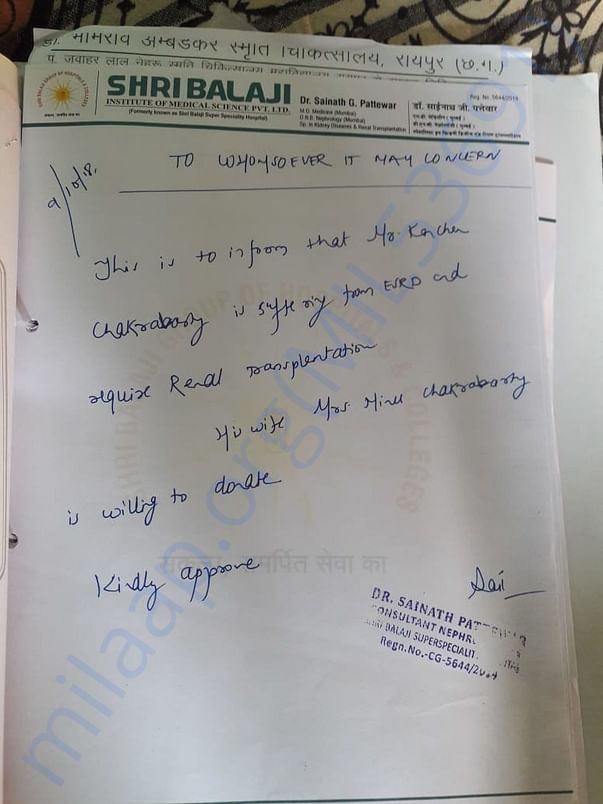 डॉ. भीमराव अम्बेडकर स्मृत चिकित्सालय, रायपुर (छ.ग.)
पं. जवाहर लाल नेहरू स्मृति चिकित्सा
SHRI BALAJI
INSTITUTE OF MEDICAL SCIENCE PVT. LTD.
(Formerly known as Shri Balaji Super Speciality Hospital)
Dr. Sainath G. Pattewar
M.D. Medicine (Mumbai)
D.N.B. Nephrology (Mumbai)
Sp. in Kidney Diseases & Renal Transplantation
Reg. No. 5644/2014
डॉ. साईनाथ जी. पत्तेवार
TO WHOMSOEVER IT MAY CONCERN
This is to inform that Mr. Kanchan
Chakraborty is suffering from ESRD and
require Renal transplantation
His wife Mrs. Minu Chakraborty
is willing to donate
Kindly approve
समर्पित सेवा का
Sai
DR. SAINATH PATTEWAR
CONSULTANT NEPHR
SHRI BALAJI SUPERSPECIALIT
Regn.No.-CG-5644/2014
milaap.org(MIL5369